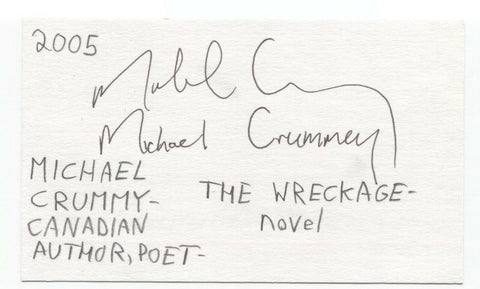 2005
Michael Crummey
MICHAEL
CRUMMY-
CANADIAN
AUTHOR, POET-
THE WRECKAGE-
novel